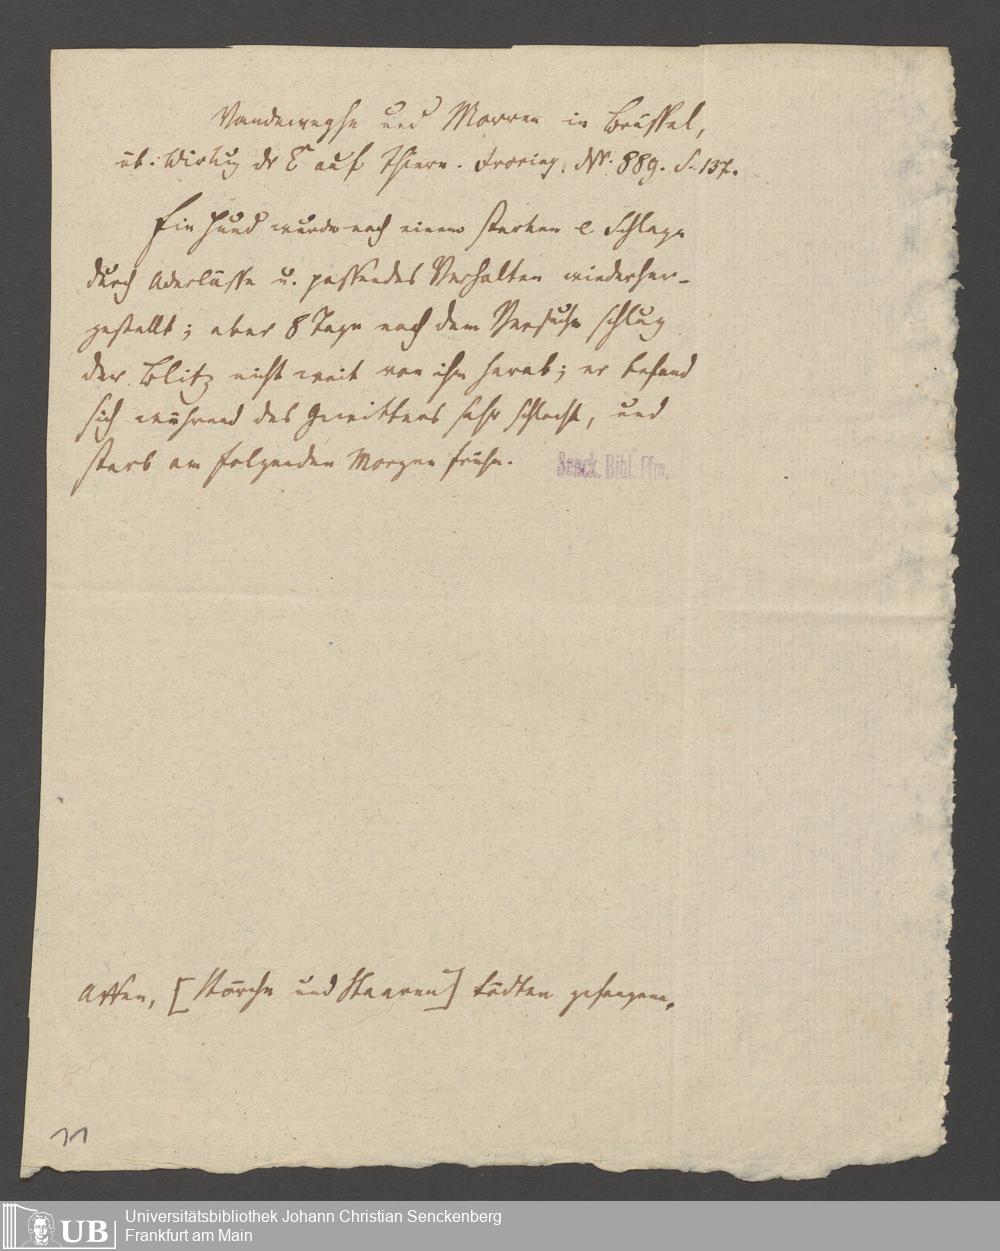 Vandeweghe und Morren in Brüssel,
üb. Wirkug dr E auf Thiere. Froriep, No. 889. S. 137.
Ein Hund wurde nach einem starken e Schlage
durch Aderlässe u. passendes Verhalten wiederher-
gestellt; aber 8 Tage nach dem Versuche schlug
der Blitz nicht weit von ihm herab; er befand
sich während des Gewitters sehr schlecht, und
starb am folgenden Morgen frühe.
Senck. Bibl. Ffm.
Affen, [Störche und Staaren] tödten gefangene,
11
UB
Universitätsbibliothek Johann Christian Senckenberg
Frankfurt am Main